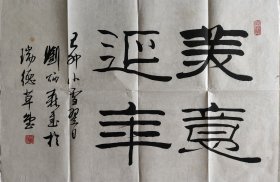 美意
延年
己卯小雪翌日
劉炳森書於
瑞德草堂